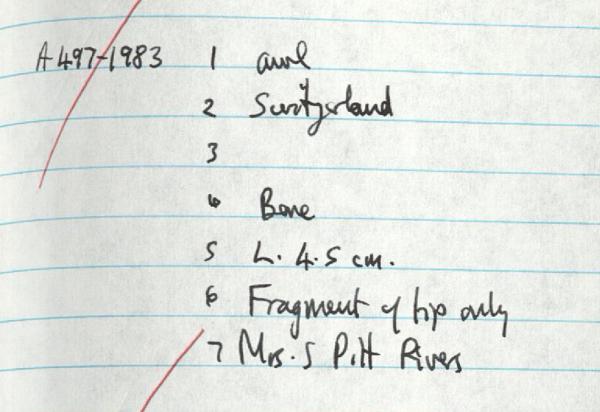 A 497-1983 1 awl
2 Switzerland
3
4 Bone
5 L. 4.5 cm.
6 Fragment of tip only
7 Mrs. S Pitt Rivers